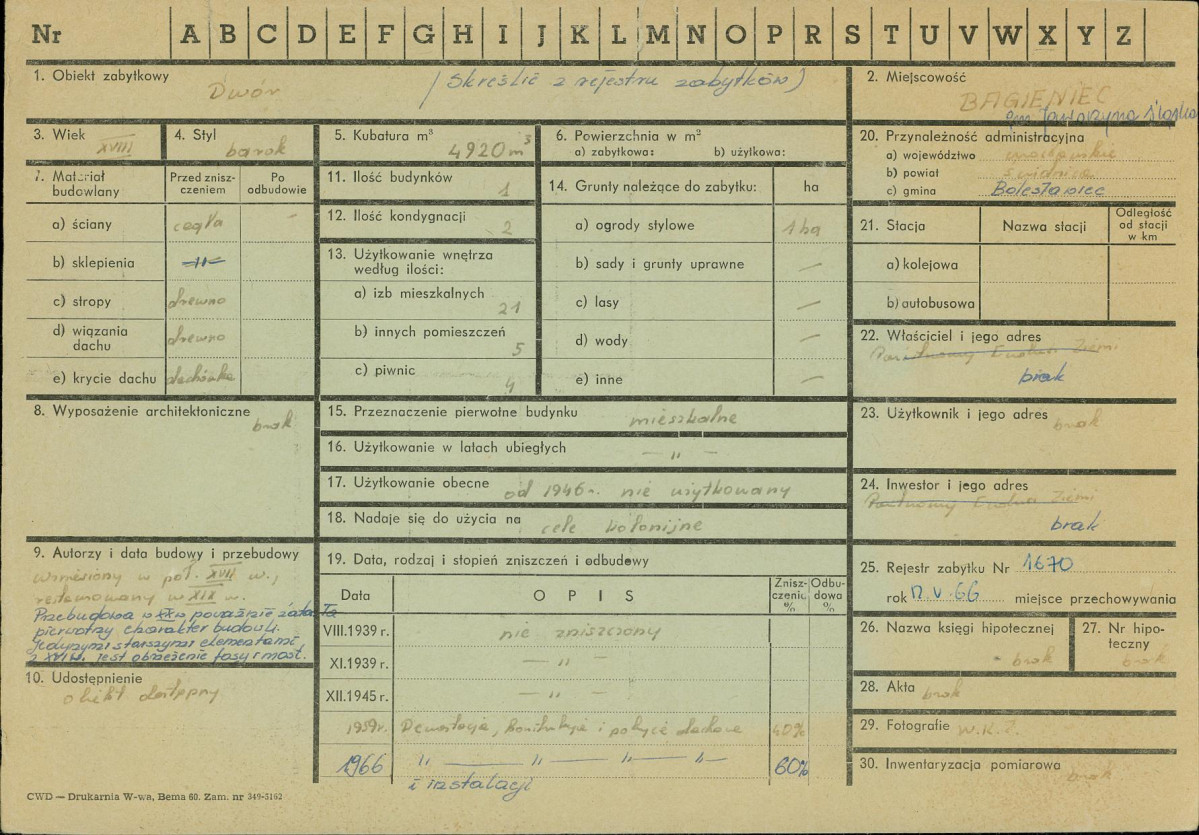 Nr A B C D E F G H I J K L M N O P R S T U V W X Y Z
1. Obiekt zabytkowy
Dwór
(Skreślić z rejestru zabytków)
2. Miejscowość
BAGIENIEC
gm. Jaworzyna Śląska
3. Wiek
XVIII
4. Styl
barok
5. Kubatura m³
4920 m³
6. Powierzchnia w m²
a) zabytkowa: b) użytkowa:
20. Przynależność administracyjna
a) województwo wrocławskie
b) powiat Świdnica
c) gmina Bolesławiec
7. Materiał budowlany
Przed zniszczeniem
Po odbudowie
a) ściany cegła –
b) sklepienia –„–
c) stropy drewno
d) wiązania dachu drewno
e) krycie dachu dachówka
11. Ilość budynków 1
12. Ilość kondygnacji 2
13. Użytkowanie wnętrza
według ilości:
a) izb mieszkalnych 21
b) innych pomieszczeń 5
c) piwnic 4
14. Grunty należące do zabytku: ha
a) ogrody stylowe 1 ha
b) sady i grunty uprawne —
c) lasy —
d) wody —
e) inne —
21. Stacja Nazwa stacji Odległość od stacji w km
a) kolejowa
b) autobusowa
22. Właściciel i jego adres
Państwowy Fundusz Ziemi
brak
8. Wyposażenie architektoniczne
brak
15. Przeznaczenie pierwotne budynku mieszkalne
16. Użytkowanie w latach ubiegłych — „ —
17. Użytkowanie obecne od 1946 r. nie użytkowany
18. Nadaje się do użycia na cele kolonijne
23. Użytkownik i jego adres
brak
24. Inwestor i jego adres
Państwowy Fundusz Ziemi
brak
9. Autorzy i data budowy i przebudowy
wzniesiony w poł. XVII w.,
restaurowany w XIX w.
Przebudowa w XX w poważnie zatarła
pierwotny charakter budowli.
Jedynymi starszymi elementami
z XVI w. jest obrzeżenie fosy i most.
10. Udostępnienie
obiekt dostępny
19. Data, rodzaj i stopień zniszczeń i odbudowy
Data OPIS Zniszczenia % Odbudowa %
VIII.1939 r. nie zniszczony
XI.1939 r. — „ —
XII.1945 r. — „ —
1959 r. Dewastacja, konstrukcja i pokrycie dachowe 40%
1966 „ — „ — „ — „ — 60%
i instalacji
25. Rejestr zabytku Nr 1670
rok V.66 miejsce przechowywania
26. Nazwa księgi hipotecznej
brak
27. Nr hipoteczny
brak
28. Akta brak
29. Fotografie W.K.Z.
30. Inwentaryzacja pomiarowa
brak
CWD — Drukarnia W-wa, Bema 60. Zam. nr 349-5162